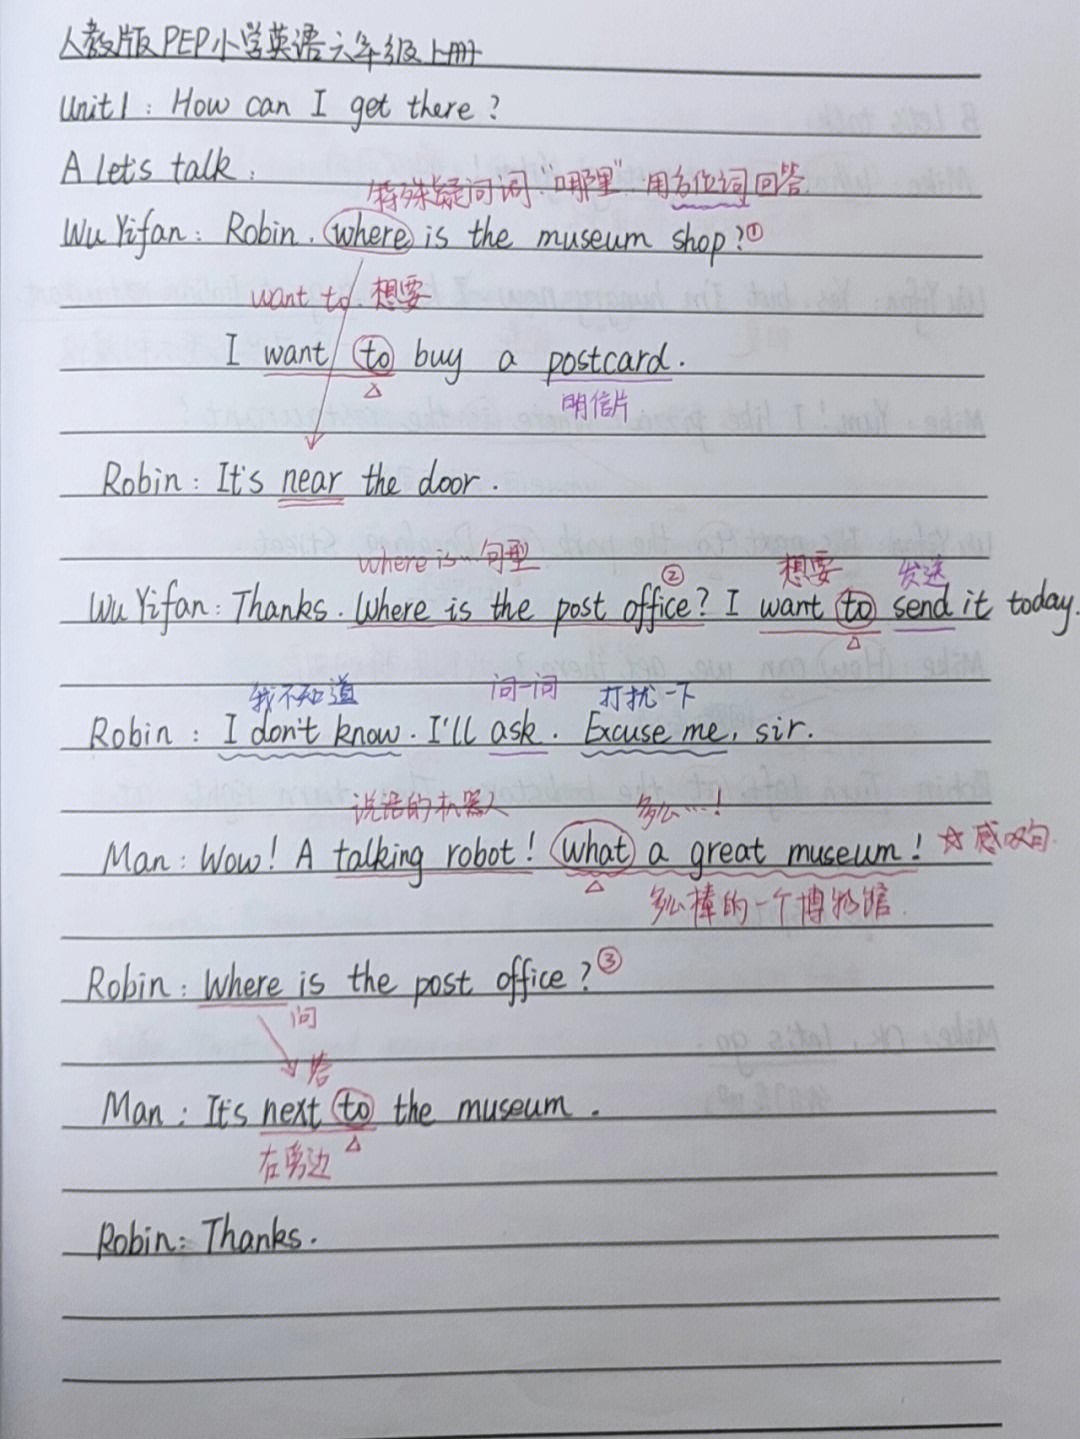 人教版PEP小学英语六年级上册
Unit1: How can I get there?
A Let's talk.
特殊疑问词"哪里".用方位词回答
Wu Yifan: Robin. where is the museum shop?①
want to.想要
I want to buy a postcard.
明信片
Robin: It's near the door.
where is…句型
② 想要 发送
Wu Yifan: Thanks. Where is the post office? I want to send it today.
我不知道 问一问 打扰一下
Robin: I don't know. I'll ask. Excuse me, sir.
说话的机器人 多么…!
Man: Wow! A talking robot! what a great museum! ☆感叹句.
多么棒的一个博物馆.
Robin: Where is the post office?③
问
答
Man: It's next to the museum.
在旁边
Robin: Thanks.